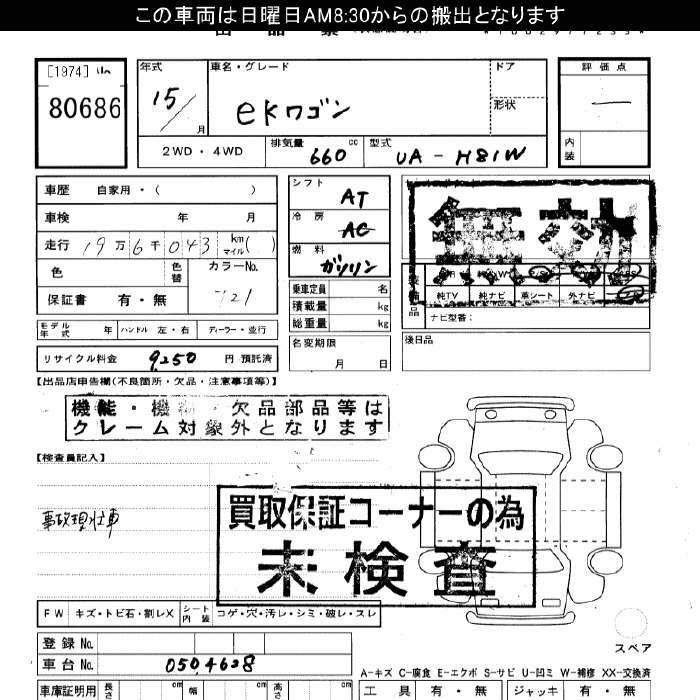 この車両は日曜日AM8:30からの搬出となります
[1974]
80686
年式 15 / 月
車名・グレード
eKワゴン
ドア
形状
評価点
内装
2WD・4WD
排気量 660 cc
型式 UA-H81W
車歴 自家用・( )
車検 年 月
走行 19万6千043 km マイル( )
色
色替
カラーNo.
保証書 有・無
シフト AT
冷房 AC
燃料 ガソリン
乗車定員 名
積載量 kg
総重量 kg
名変期限
月 日
純TV 純ナビ 革シート 外ナビ
ナビ型番:
後日品
モデル年式 年 ハンドル 左・右 ディーラー・並行
リサイクル料金 9,250 円 預託済
【出品店申告欄(不良箇所・欠品・注意事項等)】
機能・機 ・欠品部品等は
クレーム対象外となります
【検査員記入】
買取保証コーナーの為
未検査
事故現状車
FW キズ・トビ石・割レX シート内装 コゲ・穴・汚レ・シミ・破レ・スレ
スペア
登録No.
車台No. 0504628
A-キズ C-腐食 E-エクボ S-サビ U-凹ミ W-補修 XX-交換済
車庫証明用 長さ cm 幅 cm 高さ cm
工具 有・無 ジャッキ 有・無